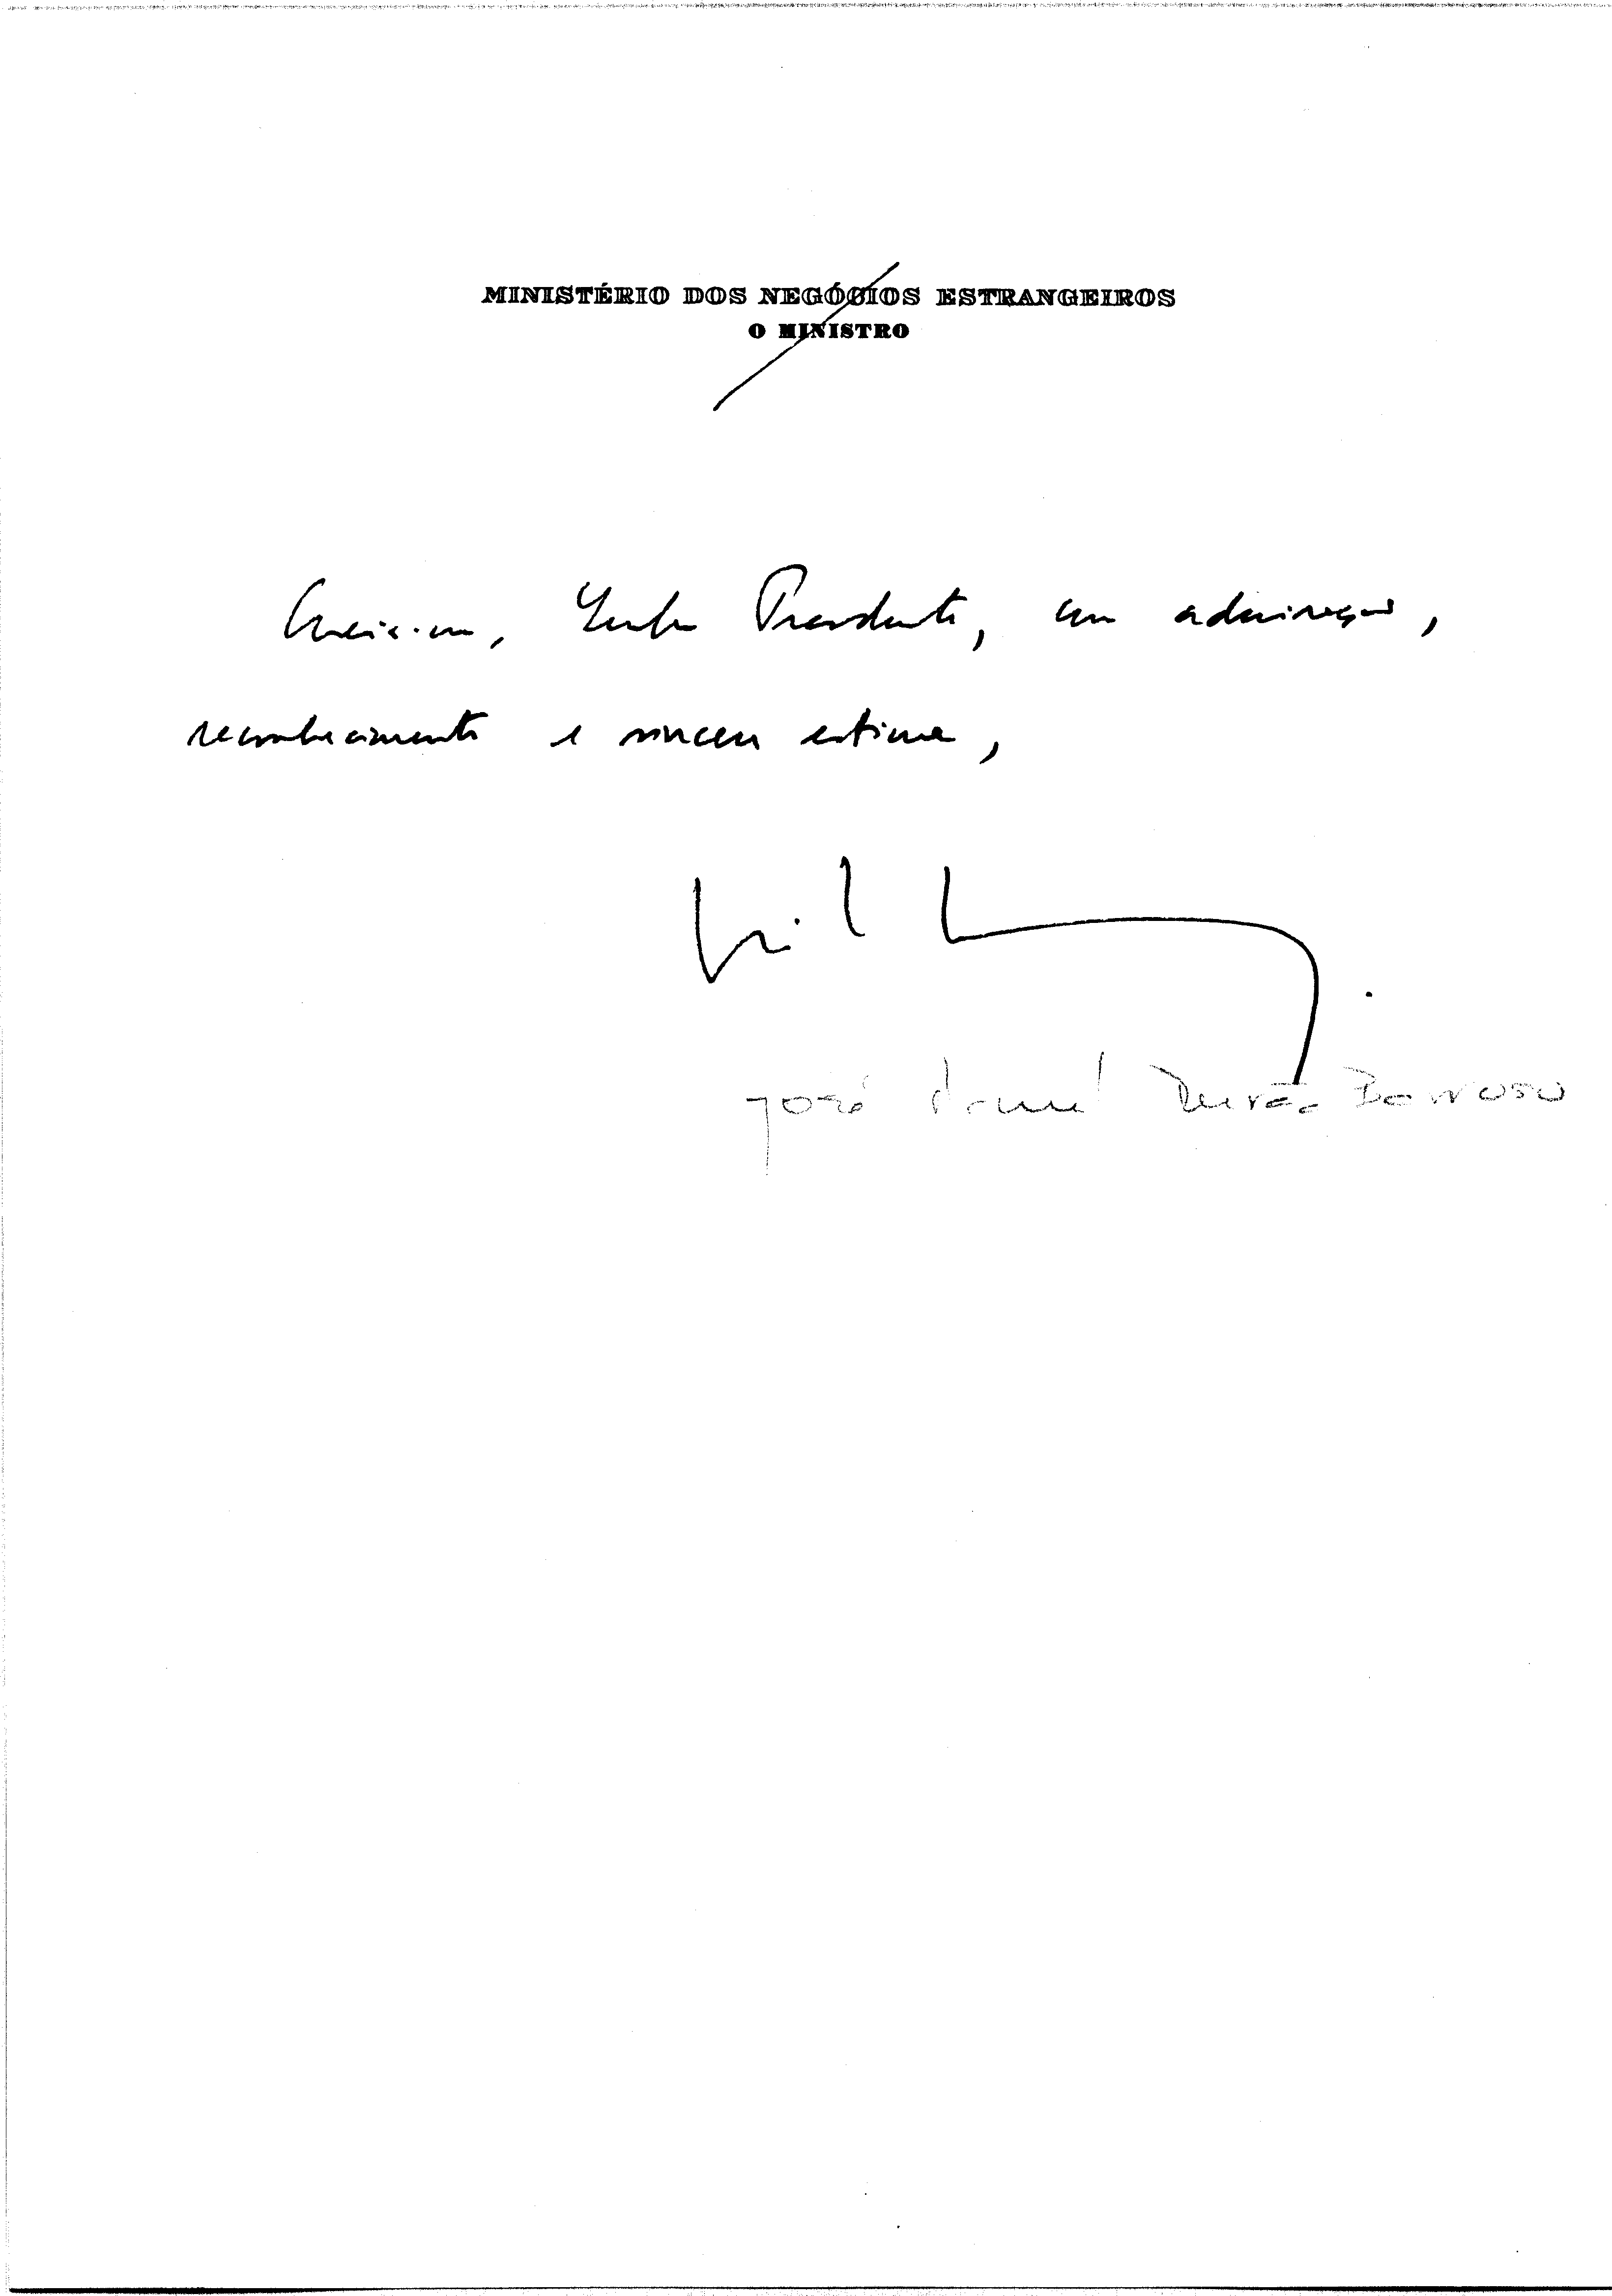 MINISTÉRIO DOS NEGÓCIOS ESTRANGEIROS
O MINISTRO
Creia-me, Senhor Presidente, com admiração,
reconhecimento e sincera estima,
José Manuel Durão Barroso